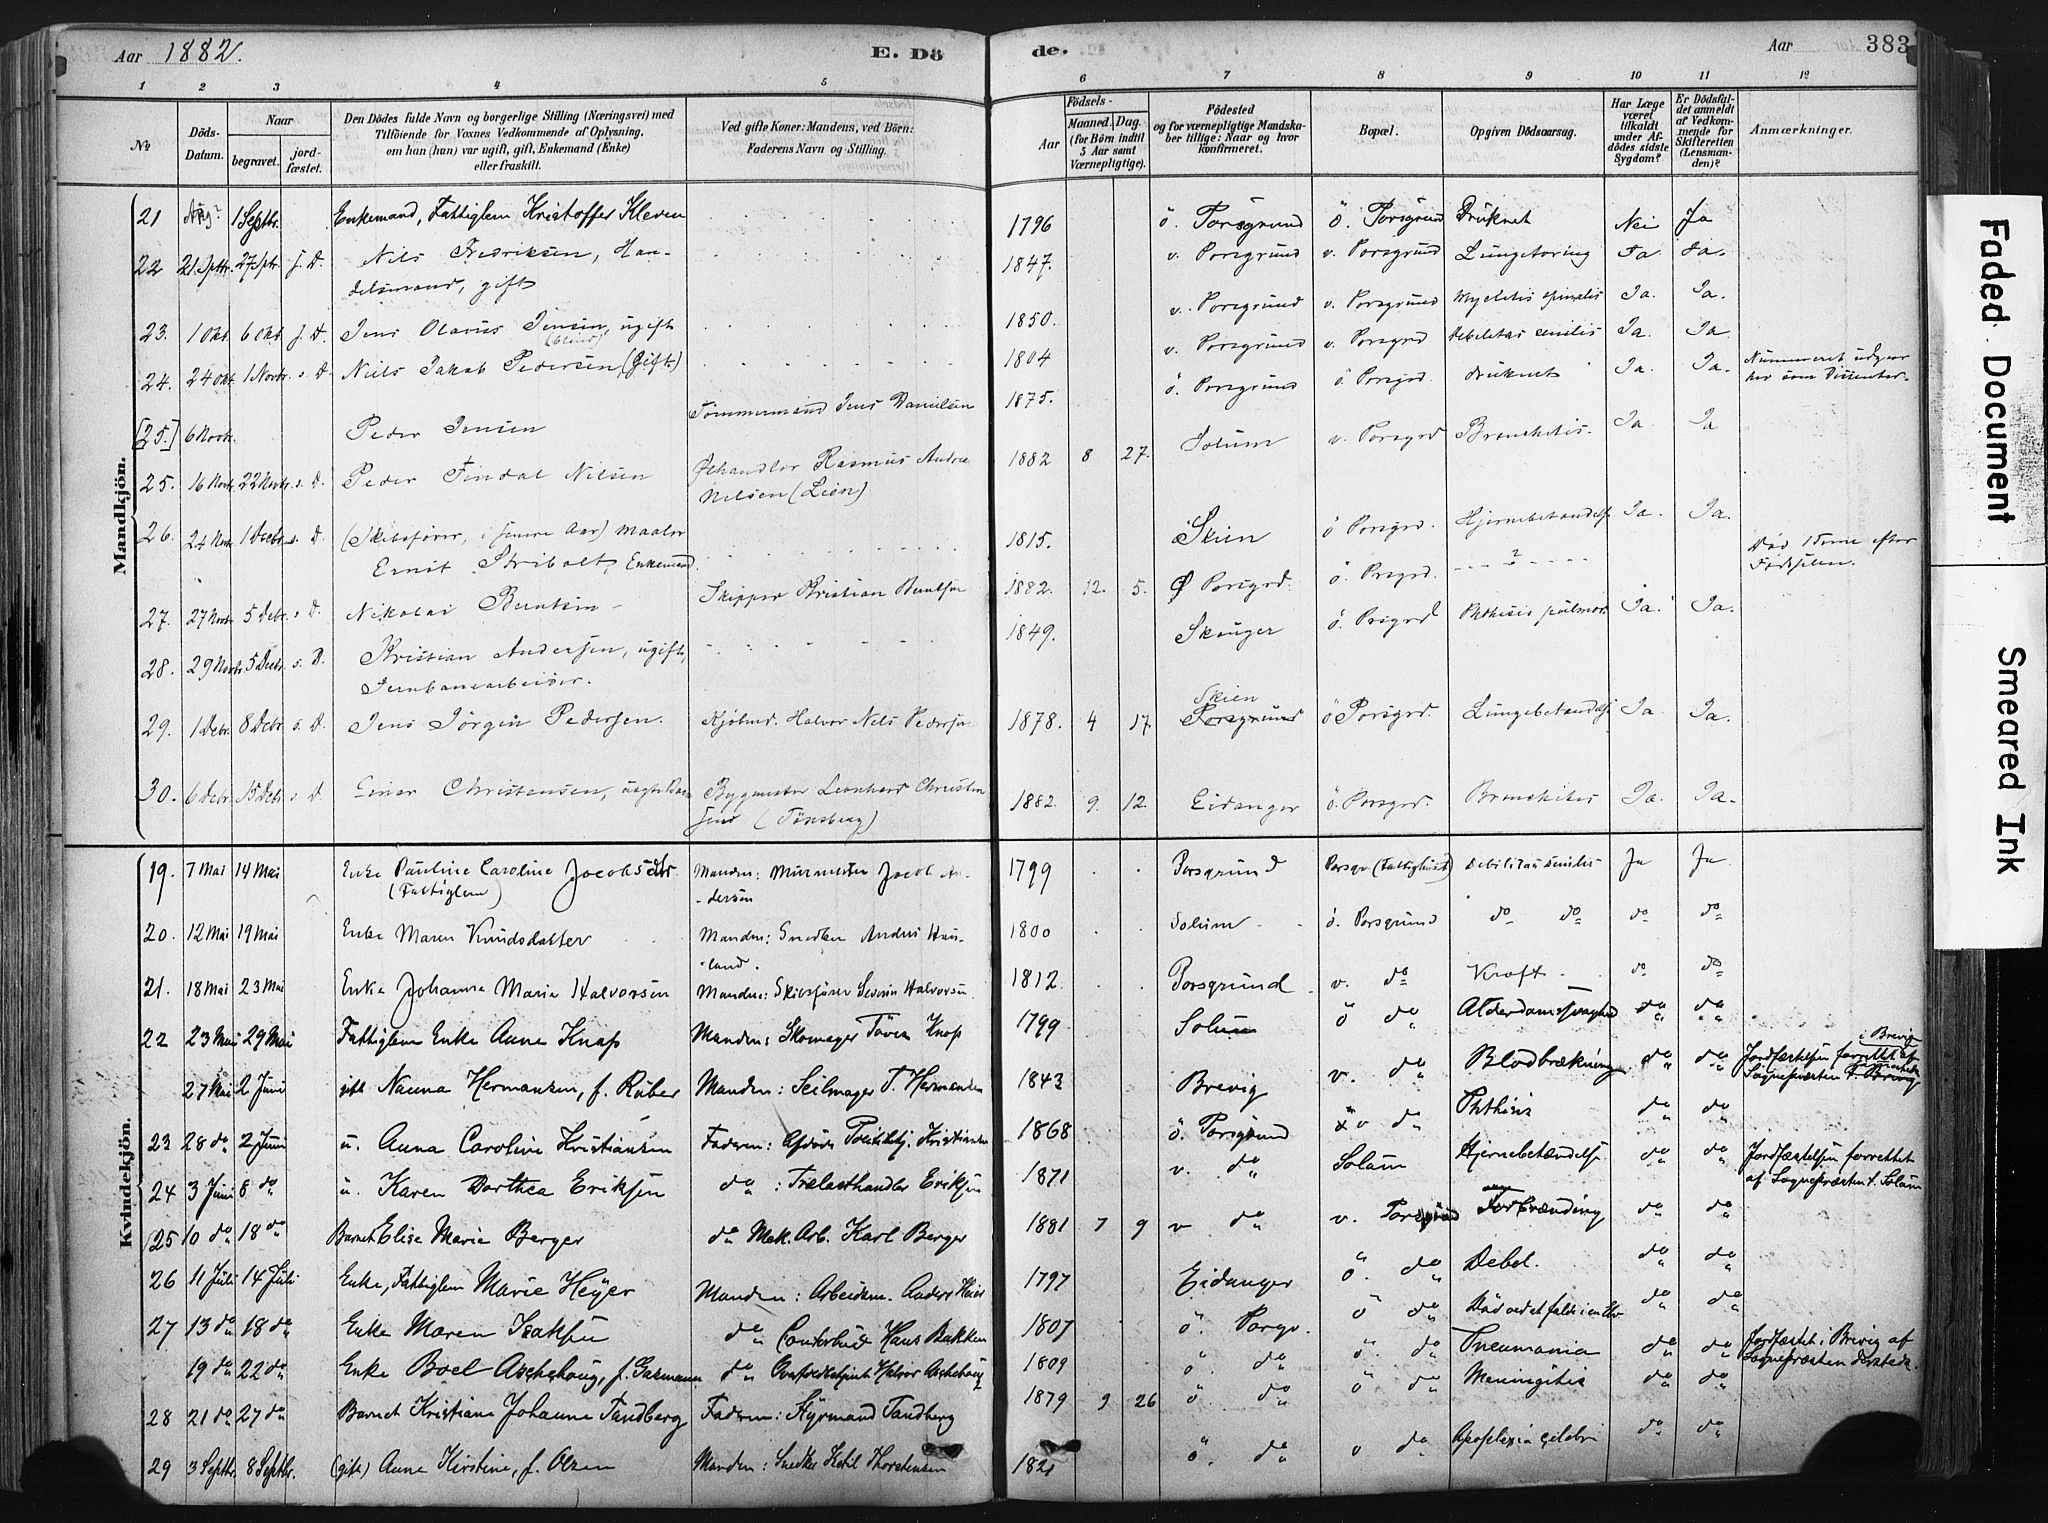 Aar 1882. E. Dö
de. Aar 383
1 2 3 4 5 6 7 8 9 10 11 12
No
Döds-Datum.
Naar
begravet.
jordfæstet.
Den Dödes fulde Navn og borgerlige Stilling (Næringsvei) med
Tilföiende for Voxnes Vedkommende af Oplysning,
om han (hun) var ugift, gift, Enkemand (Enke)
eller fraskilt.
Ved gifte Koner: Mandens, ved Börn:
Faderens Navn og Stilling.
Aar
Födsels-
Maaned. Dag.
(for Börn indtil
5 Aar samt
Værnepligtige).
Födested
og for værnepligtige Mandskaber tillige: Naar og hvor
konfirmeret.
Bopæl.
Opgiven Dödsaarsag.
Har Læge
været
tilkaldt
under Afdödes sidste
Sygdom?
Er Dödsfaldet anmeldt
af Vedkommende for
Skifteretten
(Lensmanden)?
Anmærkninger.
Mandkjön.
21 Aug? 1 Septbr. Enkemand, Fattiglem Kristoffer Kleven 1796 ö. Porsgrund ö. Porsgrund Druknet Nei Ja
22 21. Sptbr. 27 Sptr. j. D. Nils Fredriksen, Han- 1847. v. Porsgrund v. Porsgrund Lungetæring Ja Ja.
delsmand, gift
23. 1 Okt. 6 Okt. j. D. Jens Olavus Jensen, ugift 1850. v. Porsgrund v. Porsgrund Myelitis spinalis Ja. Ja.
(blind)
24. 24 Okt. 1 Novbr. s. D. Niels Jakob Pedersen (Gift) 1804 v. Porsgrund v. Porsgrd Debilitas senilis Ja. Ja
[25.] 6 Novbr. Peder Jensen Tømmermand Jens Danielsen 1875. ö. Porsgrund ö Porsgrd. druknet Ja. Ja. Nummeret udgaar
her som Dissenter.
25. 16 Novbr. 22 Novbr. s. D. Peder Findal Nilsen Ølhandler Rasmus Andrea
Nilsen (Lien) 1882 8 27. Solum v. Porsgrd Bronchitis. Ja. Ja
26. 24 Nov. 1 Decbr. s. D. (Skibsfører, i senere Aar) Maaler
Ernst Stribolt, Enkemand. 1815. Skien ö Porsgrd. Hjernebetændelse Ja. Ja.
27. 27 Novbr. 5 Debr. s D. Nikolai Berntsen Skipper Kristian Berntsen 1882. 12. 5. Ø Porsgrd. ö. Prsgrd. ? Død 1 Time efter
Fødselen.
28. 29 Novbr. 5 Decbr. s. D. Kristian Andersen, ugift, 1849. Skouger ö. Prsgrd Phthisis pulmon. Ja. Ja.
Jernbanearbeider.
29. 1 Debr. 8 Debr. s. D. Jens Jörgen Pedersen. Kjøbmd. Halvor Nils Pedersen 1878. 4 17. Skien
Porsgrund ö Porsgrd. Lungebetændelse Ja. Ja.
30. 6 Debr. 15 Debr. s. D. Einar Christensen, uægte Barn Bygmester Leonhard Christen
sens (Tønsberg) 1882 9. 12. Eidanger ö. Porsgrd. Bronchitis Ja. Ja.
Kvindekjön.
19. 7 Mai 14 Mai Enke Pauline Caroline Jacobsdtr Manden: Murmester Jacob An-
(Fattiglem) dersen 1799 Porsgrund Porsgr (Fattighuset) Debilitas senilis Ja Ja
20. 12 Mai 19 Mai Enke Maren Knudsdatter Manden: Snedker Anders Haus-
land. 1800 Solum ö. Porsgrund do do do do
21. 18 Mai 23 Mai Enke Johanna Marie Halvorsen Manden: Skibsfører Severin Halvorsen. 1812. Porsgrund v. do Kræft do do
22 23 Mai 29 Mai Fattiglem Enke Anne Knap Manden: Skomager Töver Knap 1799 Solum ö do Alderdomssvaghed do do
27 Mai 2 Juni gift Nanna Hermansen, f. Røber Manden: Seilmager T. Hermansen 1843 Brevig v. do Blodbrækning do do Jordfæstelsen forrettet af i Brevig
Sognepræsten
23 28 do 2 Juni u. Anna Caroline Kristiansen Faderen: Afdøde Kristiansen 1868 ö. Porsgrund v do Phthisis do do
24 3 Juni 8 do u. Karen Dorthea Eriksen do : Trælasthandler Eriksen 1871 v. do Solum Hjernebetændelse do do Jordfæstelsen forrettet
af Sognepræsten t. Solum
25 10 do 18 do Barnet Elise Marie Berger do Mek. Arb. Karl Berger 1881 7 9 v do v. Porsgrund Forbrænding do do
26 11 Juli 14 Juli Enke, Fattiglem Marie Heyer Manden: Arbeidsm. Anders Heier 1797 Eidanger ö. do Debil. do do
27 13 do 18 do Enke Maren Isaksen do Hans Bakken 1807 ö. Porsgr. ö do Död ved et fald i en do do
19 do 22 do Enke Boel Aschehoug, f. Gasmann do Halvor Aschehoug 1809 ö. do ö. do Pneumonia do do Jordfæstet i Brevig af
Sognepræsten dersteds.
28 21 do 27 do Barnet Kristiane Johanne Tandberg Faderen: Styrmand Tandberg 1879 9 26 ö. do ö do Meningitis do do
29 3 Septbr. 8 Septbr. (gift) Anne Kirstine, f. Olsen Manden: Snedker Ketil Thorstensen 1821 ö. do v do Apoplexia do do
Faded Document
Smeared Ink